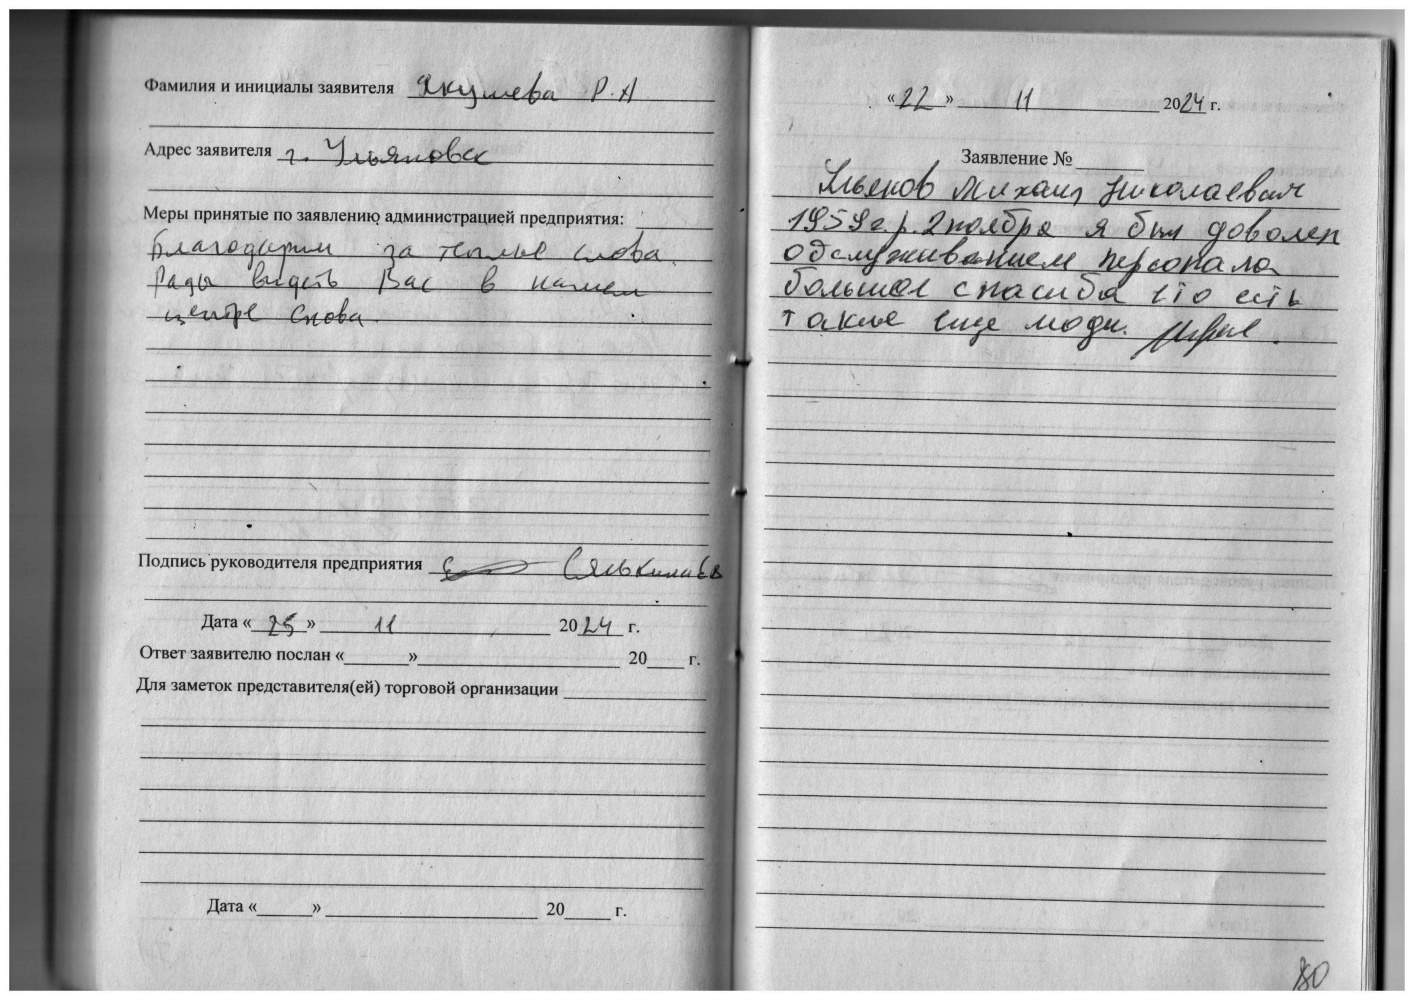 Фамилия и инициалы заявителя Якушева Р.А
Адрес заявителя г. Ульяновск
Меры принятые по заявлению администрацией предприятия:
Благодарим за теплые слова.
Рады видеть Вас в нашем
центре снова.
Подпись руководителя предприятия
Дата «25» 11 2024 г.
Ответ заявителю послан «______»____________ 20____ г.
Для заметок представителя(ей) торговой организации
Дата «______» ____________ 20_____ г.
«22» 11 2024 г.
Заявление №
Ульянов Михаил Николаевич
1959г.р. 2 ноября я был доволен
обслуживанием персонала
большое спасиба что есть
такие еще люди.
80